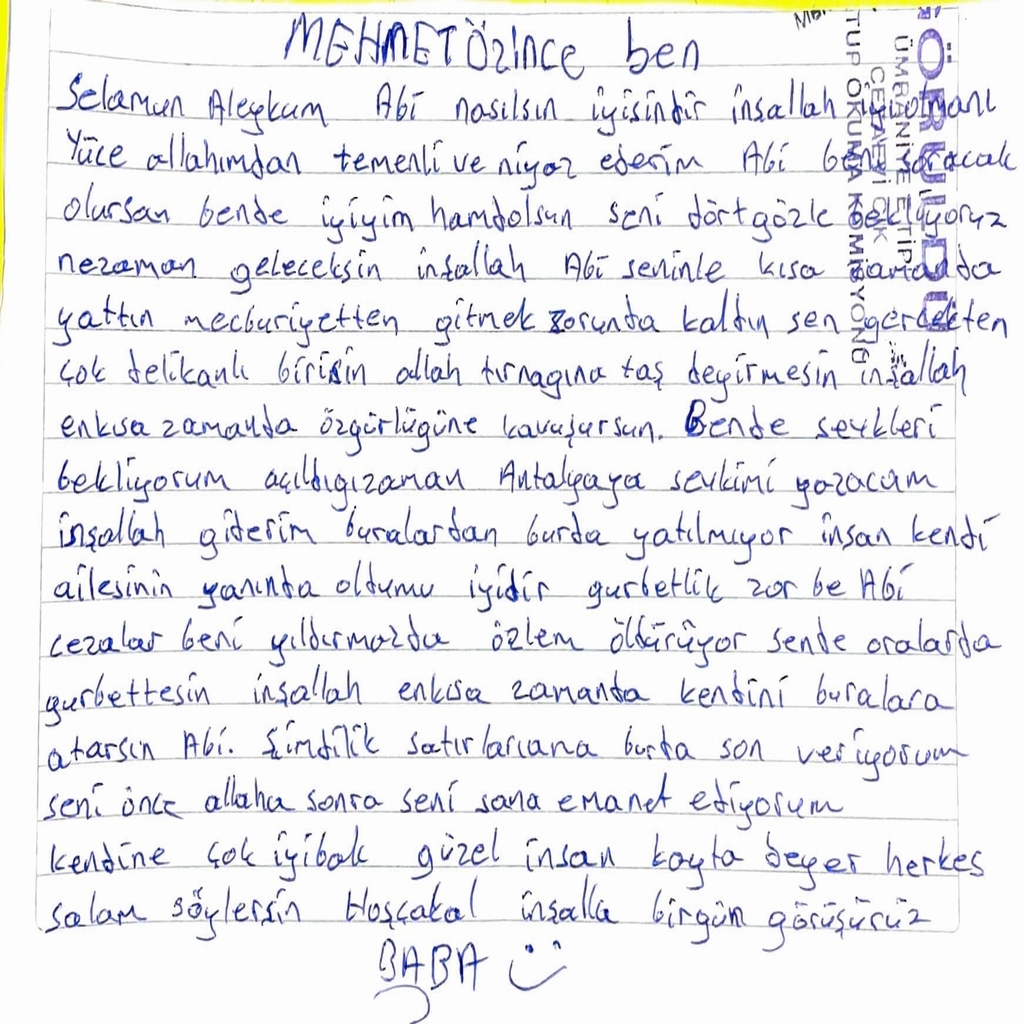 MEHMET Özince ben
Selamun Aleykum Abi nasılsın iyisindir inşallah iyiolmanı
Yüce allahımdan temenli ve niyaz ederim Abi beni soracak
olursan bende iyiyim hamdolsun seni dörtgözle bekliyoruz
nezaman geleceksin inşallah Abi seninle kısa zamanda
yattın mecburiyetten gitmek zorunda kaldın sen gerçekten
çok delikanlı birisin allah tırnagına taş deyirmesin inşallah
enkısa zamanda özgürlügüne kavuşursun. Bende sevkleri
bekliyorum açıldıgızaman Antalyaya sevkimi yazacam
inşallah giderim buralardan burda yatılmıyor insan kendi
ailesinin yanında oldumu iyidir gurbetlik zor be Abi
cezalar beni yıldırmazda özlem öldürüyor sende oralarda
gurbettesin inşallah enkısa zamanda kendini buralara
atarsın Abi. Şimdilik satırlarıana burda son veriyorum
seni önce allaha sonra seni sana emanet ediyorum
kendine çok iyibak güzel insan kayda deyer herkes
salam söylersin Hoşçakal inşalla birgün görüşürüz
BABA
GÖRÜLDÜ
ÜMRANİYE E TİPİ
CEZAEVİ
MEKTUP OKUMA KOMİSYONU